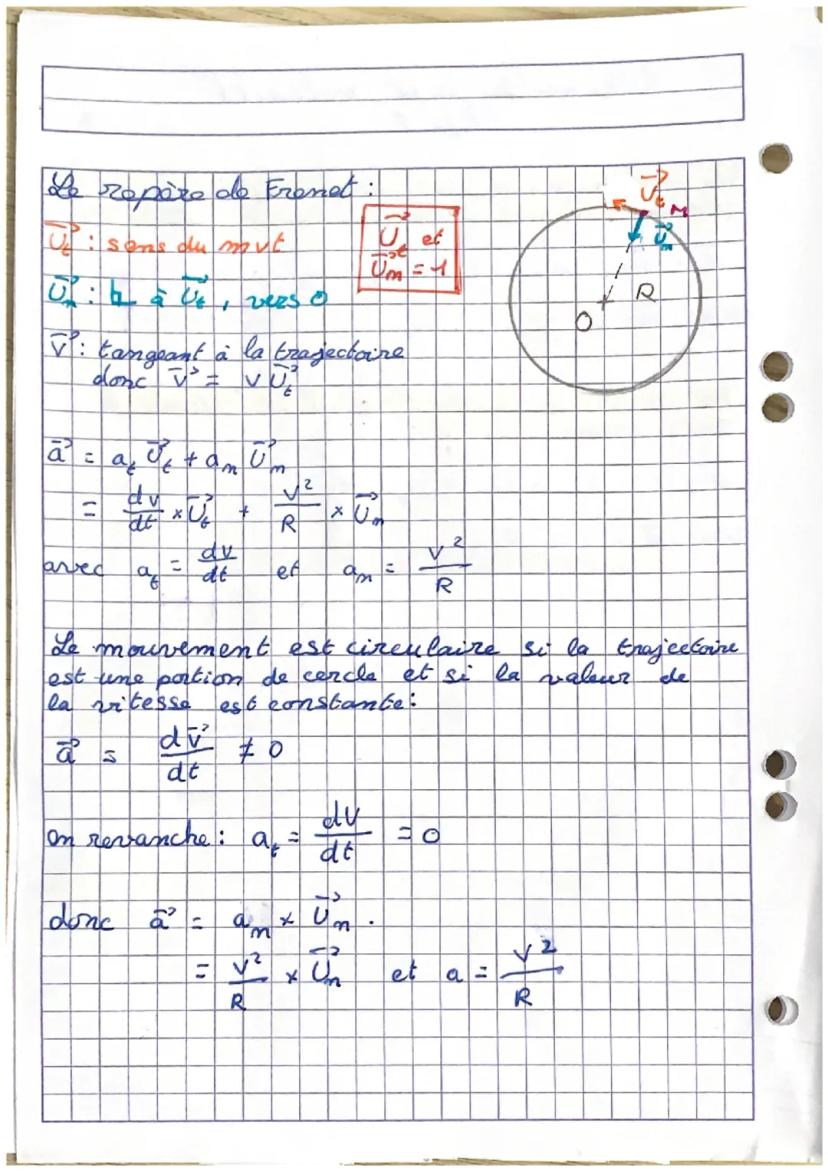 Le repère de Frenet :
U⃗t : sens du mvt
U⃗t et
U⃗n = 1
U⃗n : ⊥ à U⃗t, vers O
U⃗t
M
U⃗n
R
O
V⃗ : tangeant à la trajectoire
donc V⃗ = V U⃗t
a⃗ = at U⃗t + an U⃗n
= dv/dt × U⃗t + V²/R × U⃗n
avec at = dv/dt et an = V²/R
Le mouvement est circulaire si la trajectoire
est une portion de cercle et si la valeur de
la vitesse est constante :
a⃗ = dV⃗/dt ≠ 0
en revanche : at = dV/dt = 0
donc a⃗ = an × U⃗n.
= V²/R × U⃗n et a = V²/R